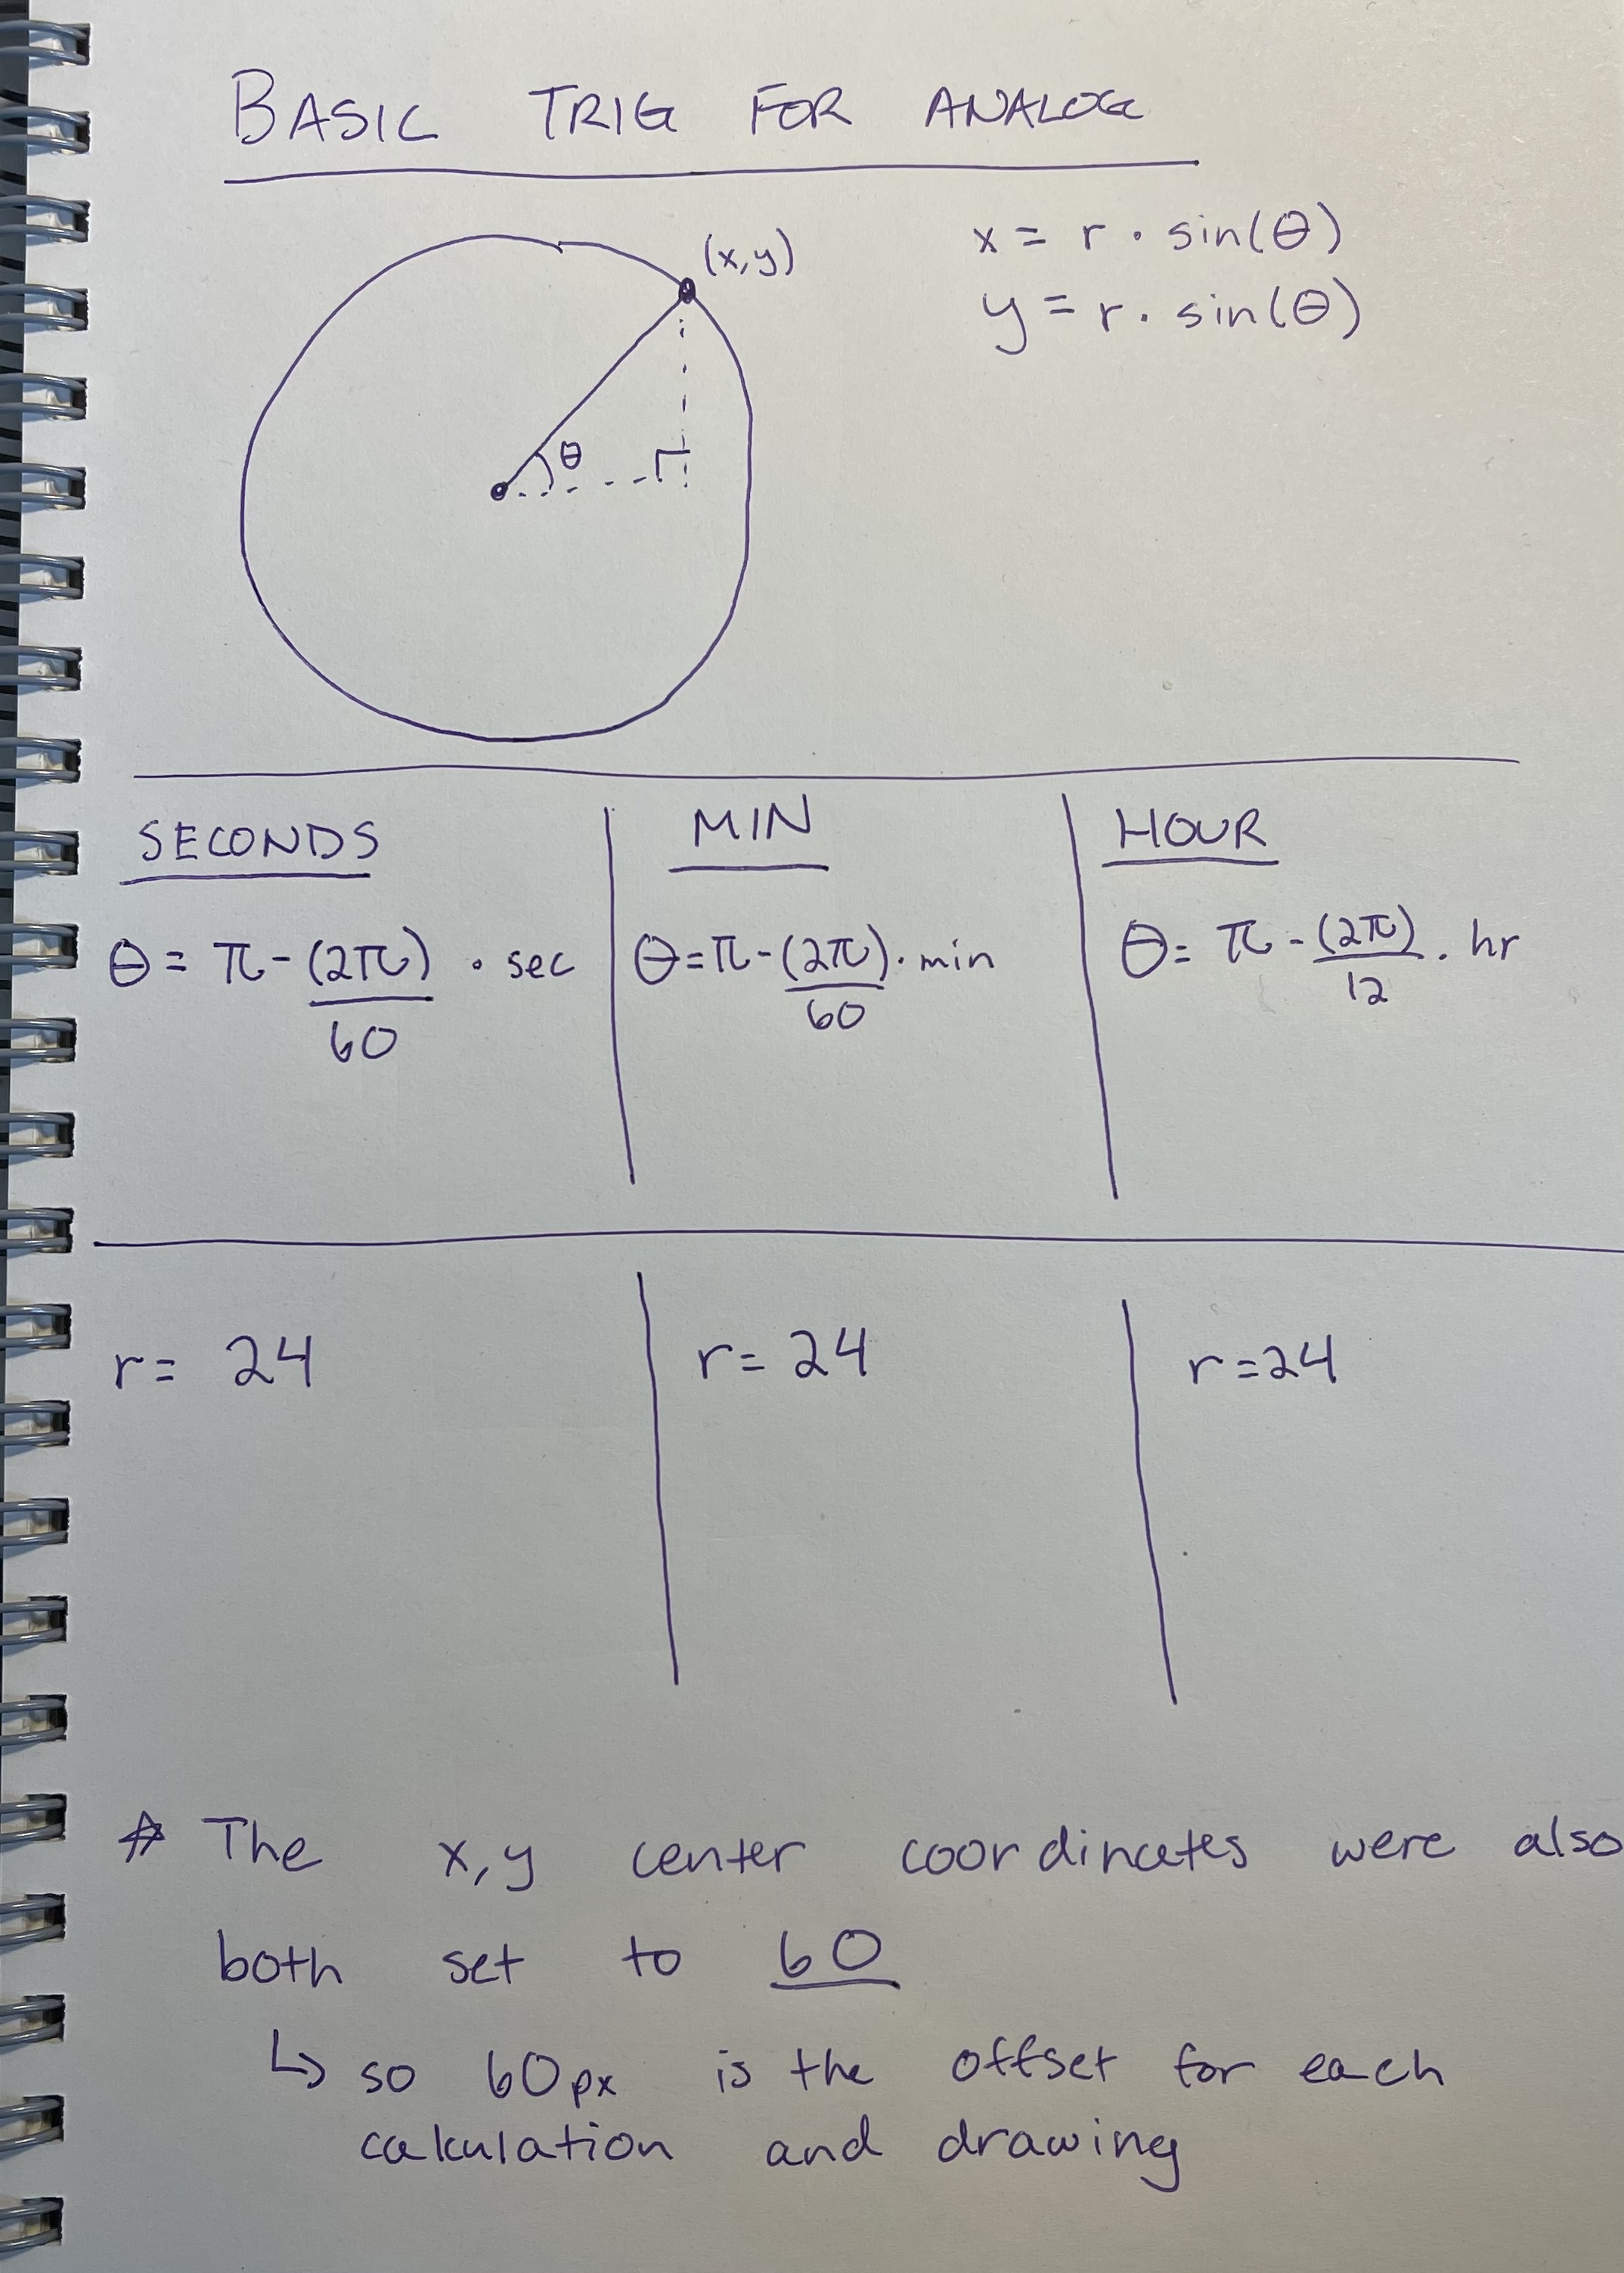 BASIC TRIG FOR ANALOG
(x,y)
x = r · sin(θ)
y = r · sin(θ)
θ
SECONDS
θ = π - (2π)/60 · sec
MIN
θ = π - (2π)/60 · min
HOUR
θ = π - (2π)/12 · hr
r = 24
r = 24
r = 24
* The x,y center coordinates were also
both set to 60
↳ so 60px is the offset for each
calculation and drawing